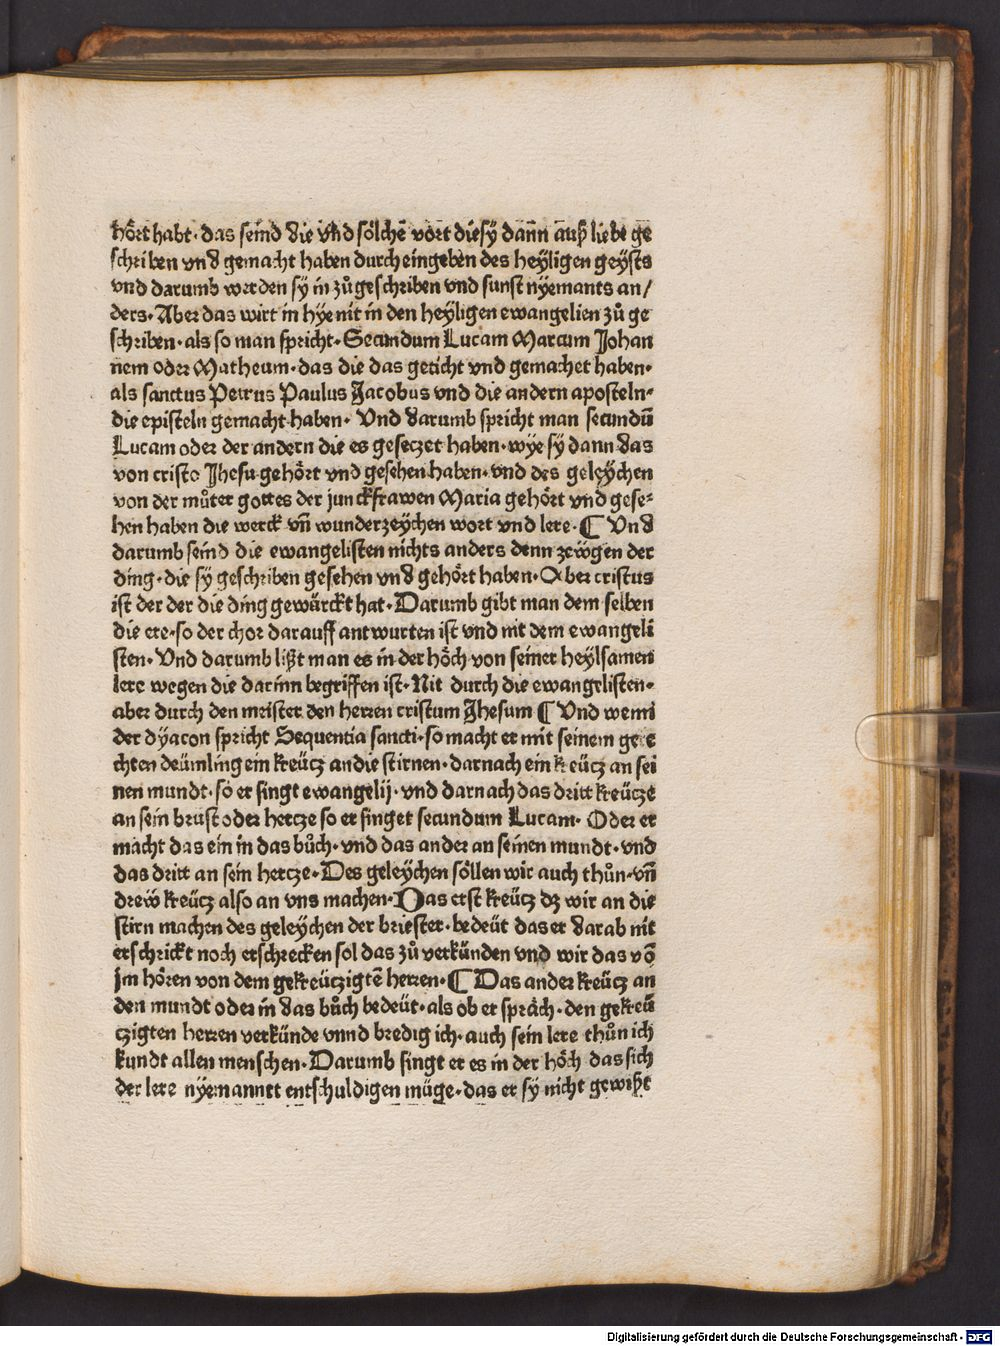 hörtt habt · das seind die vnd sölchē wort die sy dañn auß liebe ge
schriben vnd gemacht haben durch eingeben des heyligen geysts
vnd darumb werden sy in zůgeschriben vnd sunst nyemants an/
ders · Aber das wirt in hye nit in den heyligen ewangelien zů ge
schriben · als so man spricht · Secundum Lucam Marcum Johan
nem oder Matheum · das die das geticht vnd gemachet haben ·
als sanctus Petrus Paulus Jacobus vnd die andern aposteln ·
die episteln gemacht haben · Vnd darumb spricht man secundū
Lucam oder der andern die es geseczet haben · wye sy dann das
von cristo Jhesu gehört vnd gesehen haben · vnd des geleychen
von der můter gottes der junckfrawen Maria gehört vnd gese⸗
hen haben die werck vñ wunderzeychen wort vnd lere · ¶ Vnd
darumb seind die ewangelisten nichts anders denn zewgen der
ding · die sy geschriben gesehen vnd gehört haben · Aber cristus
ist der der die ding gewürckt hat · Darumb gibt man dem selben
die ere · so der chor darauff antwurten ist vnd nit dem ewangeli
sten · Vnd darumb lißt man es in der höch von seiner heylsamen
lere wegen die darinn begriffen ist · Nit durch die ewangelisten ·
aber durch den meister den herren cristum Jhesum ¶ Vnd wenn
der dyacon spricht Sequentia sancti · so macht er mit seinem gere
chten deümling ein kreücz an die stirnen · darnach ein kreücz an sei
nen mundt · so er singt ewangelij · vnd darnach das dritt kreücze
an sein brust oder hercze so er singet secundum Lucam · Oder er
macht das ein in das bůch · vnd das ander an seinen mundt · vnd
das dritt an sein hercze · Des geleychen söllen wir auch thůn · vñ
drew kreücz also an vns machen · Das erst kreücz dz wir an die
stirn machen des geleychen der briester · bedeüt das er darab nit
erschrickt noch erschrecken sol das zů verkünden vnd wir das vō
jm hören von dem gekreüczigtē herren · ¶ Das ander kreücz an
den mundt oder in das bůch bedeüt · als ob er spräch · den gekreü
czigten herren verkünde vnnd bredig ich · auch sein lere thůn ich
kundt allen menschen · Darumb singt er es in der höch das sich
der lere nyemannt entschuldigen müge · das er sy nicht gewißt
Digitalisierung gefördert durch die Deutsche Forschungsgemeinschaft - DFG